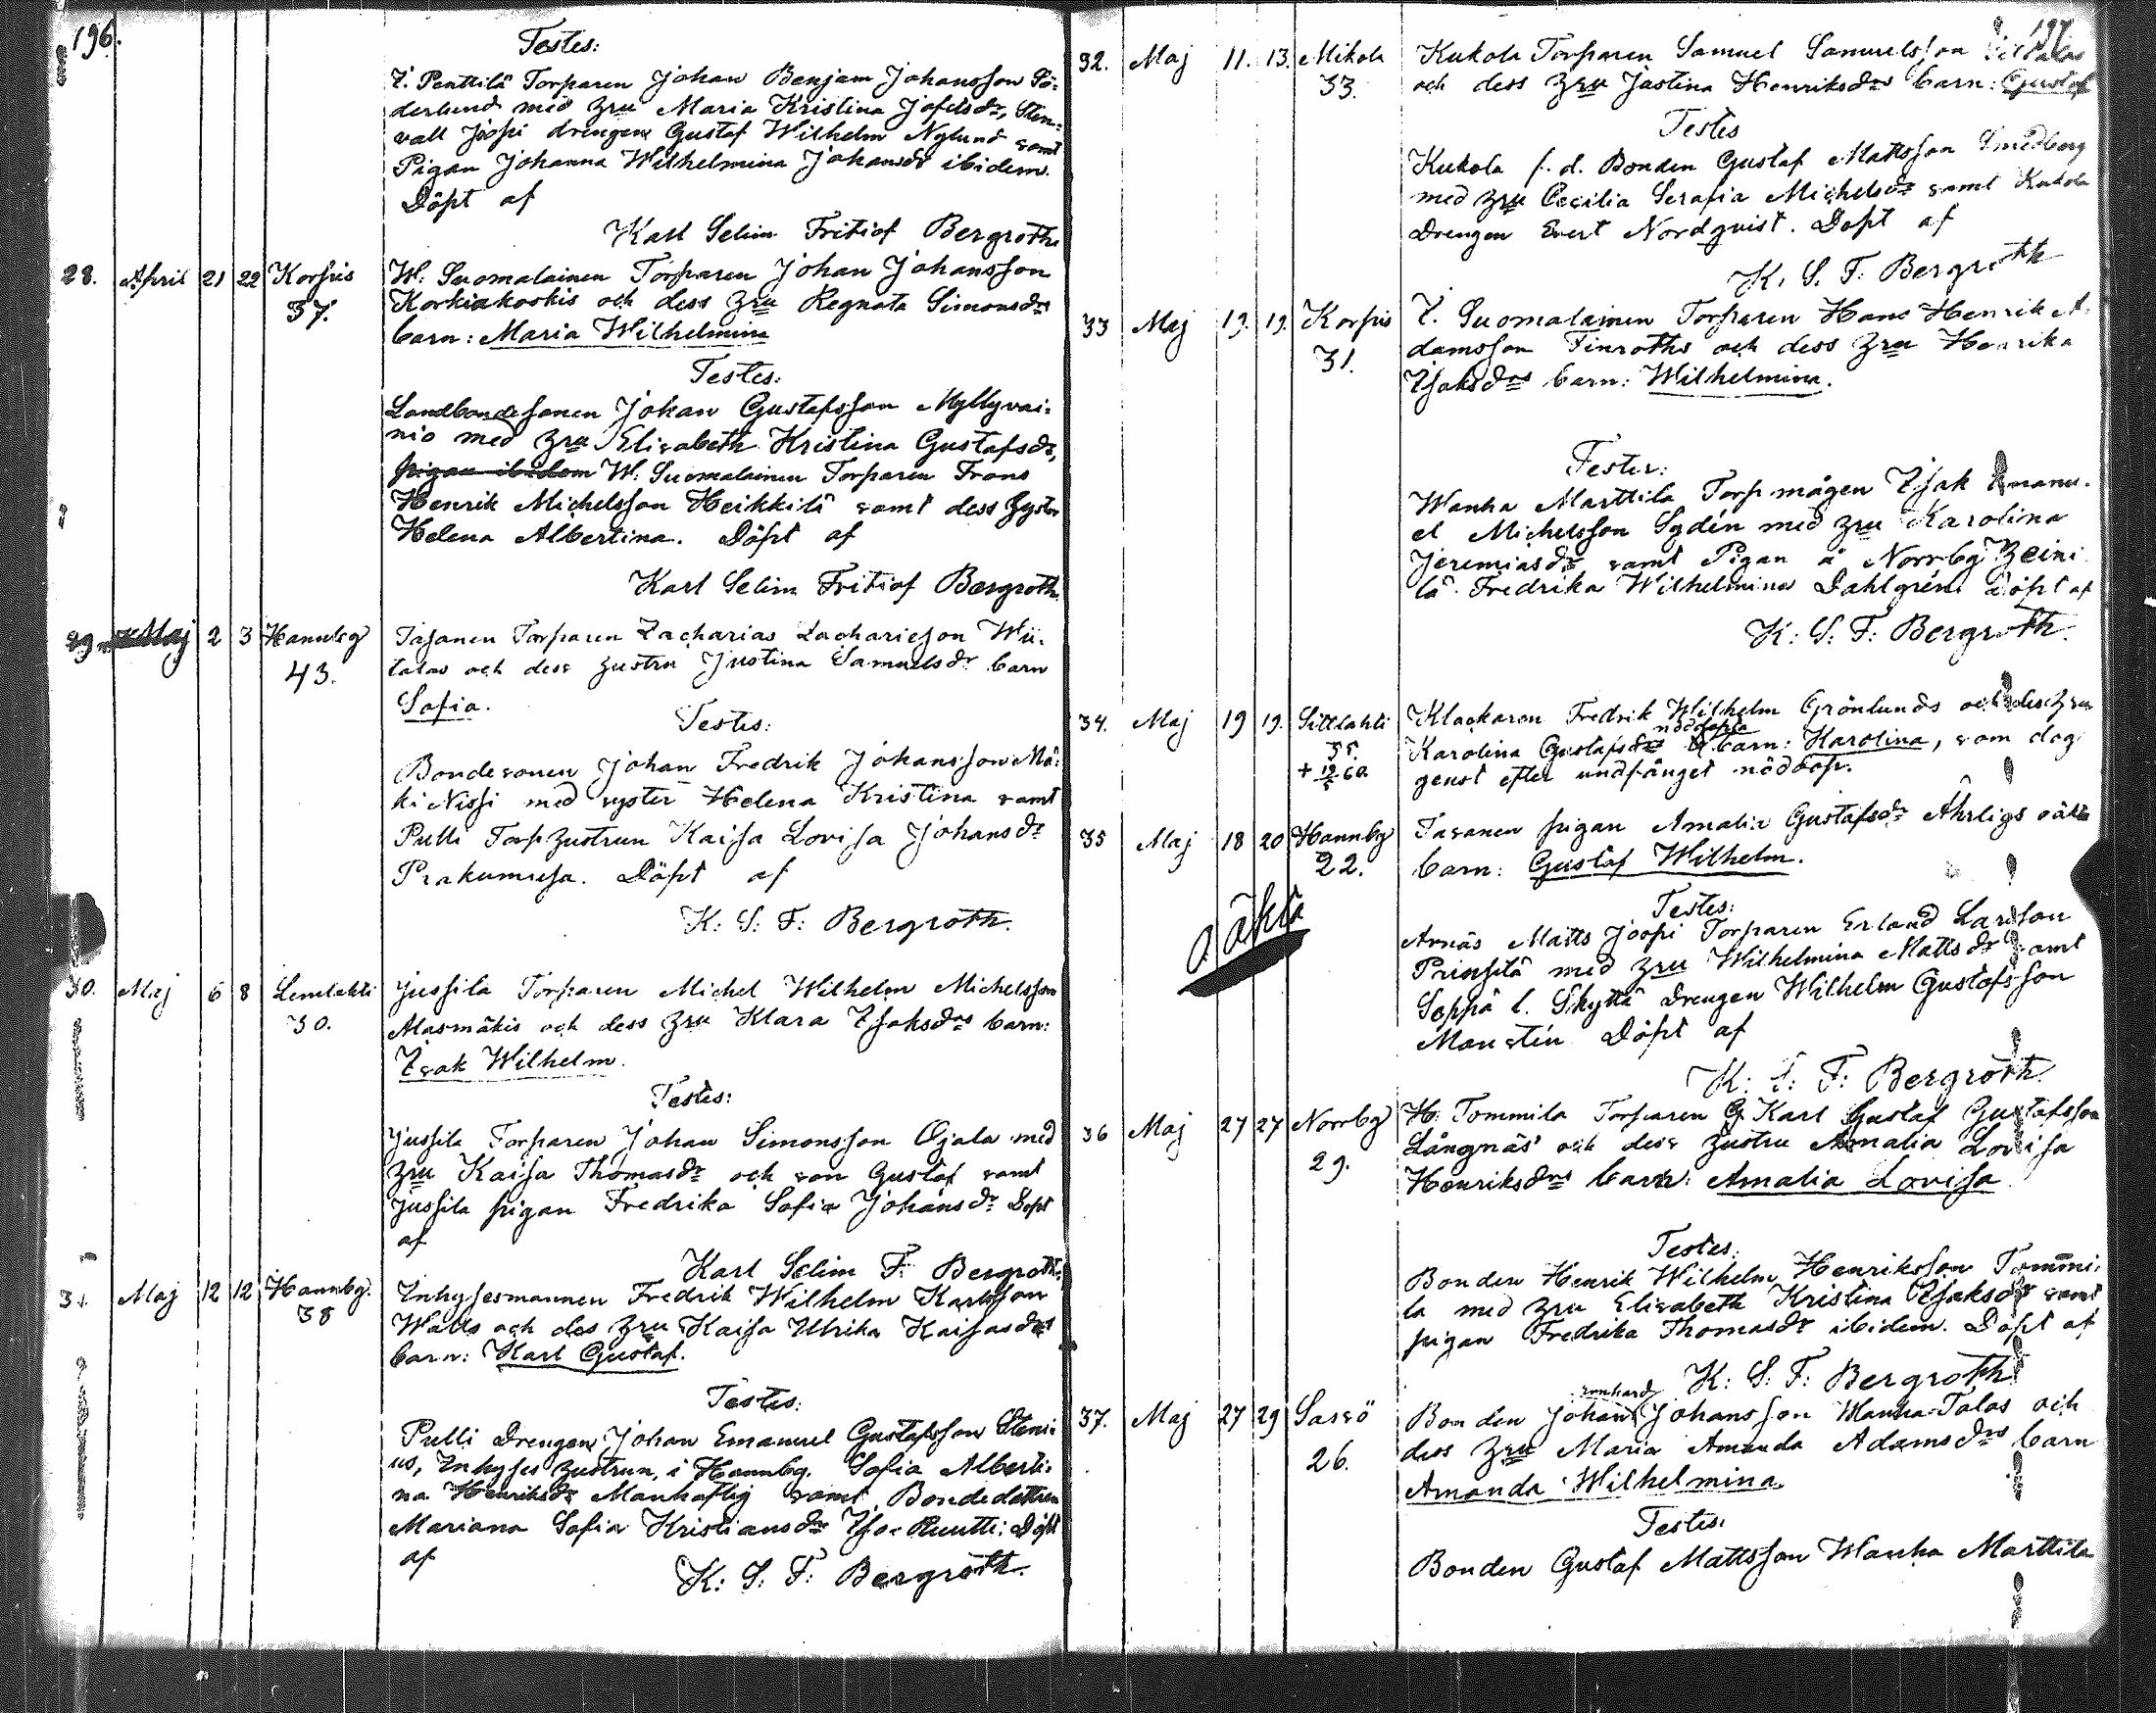 196.
Testes:
Y. Penttilä Torparen Johan Benjam Johansson Sö-
derlund med Hru Maria Kristina Josefsdr, Sten-
vall Joopi drengen Gustaf Wilhelm Nylund samt
Pigan Johanna Wilhelmina Johansdr ibidem.
Döpt af
Karl Selim Fritiof Bergroth.
28. April 21 22 Korpis W. Suomalainen Torparen Johan Johansson
37. Korkiakoskis och dess Hru Regnata Simonsdrs
barn: Maria Wilhelmina
Testes:
Landbondesonen Johan Gustafsson Myllyvai-
nio med Hru Elisabeth Kristina Gustafsdr,
pigan ibidem W. Suomalainen Torparen Frans
Henrik Michelsson Heikkilä samt dess Syster
Helena Albertina. Döpt af
Karl Selim Fritiof Bergroth.
29 Maj 2 3 Hannbg Tasanen Torparen Zacharias Zachariesson Wii-
43. talas och dess Hustru Justina Samuelsdr barn
Sofia.
Testes:
Bondesonen Johan Fredrik Johansson Mä-
ki Nissi med syster Helena Kristina samt
Pulli Torphustrun Kaisa Lovisa Johansdr
Prakumusa. Döpt af
K. S. F. Bergroth.
30. Maj 6 8 Lemlahti Jussila Torparen Michel Wilhelm Michelsson
30. Masmäkis och dess Hru Klara Isaksdrs barn:
Isak Wilhelm.
Testes:
Jussila Torparen Johan Simonsson Ojala med
Hru Kaisa Thomasdr och son Gustaf samt
Jussila pigan Fredrika Sofia Johansdr Döpt
af
Karl Selim F. Bergroth.
31. Maj 12 12 Hannbg. Inhysesmannen Fredrik Wilhelm Karlsson
38 Walls och des Hru Kaisa Ulrika Kaisasdrs
barn: Karl Gustaf.
Testes:
Pulli Drengen Johan Emanuel Gustafsson Steni-
us, Inhyses hustrun, i Hannbg. Sofia Alberti-
na Henriksdr Manhaftig samt Bondedottren
Mariana Sofia Kristiansdr Iso-Ruutti: Döpt
af
K: S: F: Bergroth.
197.
32. Maj 11. 13. Mikola Kukola Torparen Samuel Samuelsson
33. och dess Hru Justina Henriksdrs barn: Gustaf
Testes
Kukola f. d. Bonden Gustaf Mattsson Smedberg
med Hru Cecilia Serafia Michelsdr samt Kukola
Drengen Evert Nordqvist. Döpt af
K. S. F. Bergroth
33 Maj 19. 19. Korpis Y. Suomalainen Torparen Hans Henrik A-
31. damsson Finroths och dess Hru Henrika
Isaksdrs barn: Wilhelmina.
Testes:
Wanha Marttila Torpmågen Isak Emanu-
el Michelsson Sydén med Hru Karolina
Jeremiasdr samt Pigan å Norrbg Heini-
lä Fredrika Wilhelmina Dahlgrén Döpt af
K: S: F: Bergroth.
34. Maj 19 19. Sittlahti Klockaren Fredrik Wilhelm Grönlunds och dess Hru
35. Karolina Gustafsdrs nöddöpta barn: Karolina, som dog
+ 19/5 60. genast efter undfånget nöddop.
35 Maj 18 20 Hannbg Tasanen pigan Amalia Gustafsdr Ährligs oäkta
22. barn: Gustaf Wilhelm.
oäkta
Testes:
Arnäs Matts Joopi Torparen Erland Larsson
Prinsilä med Hru Wilhelmina Mattsdr samt
Seppä l. Skyttä Drengen Wilhelm Gustafsson
Manstén Döpt af
K: S: F: Bergroth.
36 Maj 27 27 Norrbg H. Tommila Torparen G. Karl Gustaf Gustafsson
29. Långnäs och dess hustru Amalia Lovisa
Henriksdrs barn: Amalia Lovisa
Testes:
Bonden Henrik Wilhelm Henriksson Tommi-
la med Hru Elisabeth Kristina Isaksdr samt
pigan Fredrika Thomasdr ibidem. Döpt af
K: S: F: Bergroth
37. Maj 27 29 Sassö Bonden Johan Johansson Wanha-Talas och
26. dess Hru Maria Amanda Adamsdrs barn
Amanda Wilhelmina.
Testes:
Bonden Gustaf Mattsson Wanha Marttila